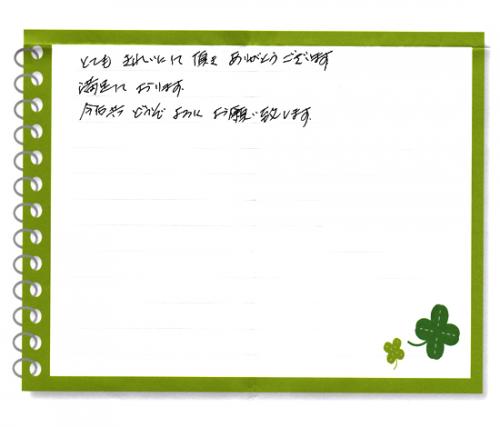 とても きれいにして 頂き ありがとうございます
満足して おります。
今后共 どうぞ よろしく お願い致します。